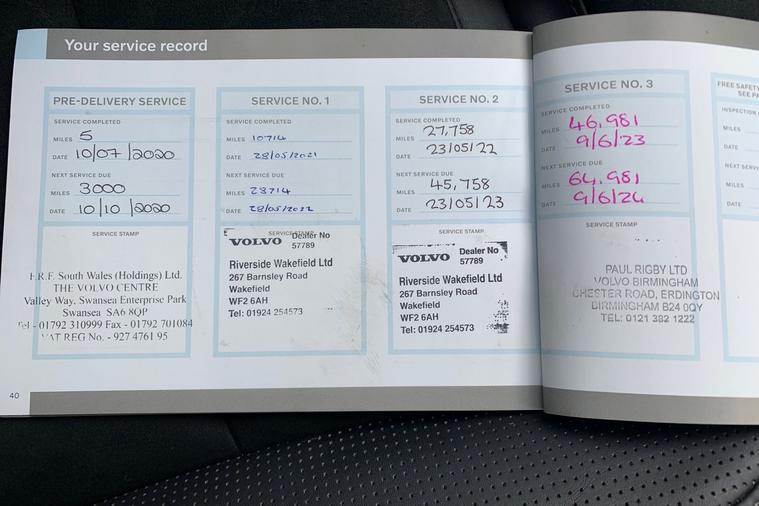 Your service record
PRE-DELIVERY SERVICE
SERVICE COMPLETED
MILES 5
DATE 10/07/2020
NEXT SERVICE DUE
MILES 3000
DATE 10/10/2020
SERVICE STAMP
F.R.F. South Wales (Holdings) Ltd.
THE VOLVO CENTRE
Valley Way, Swansea Enterprise Park
Swansea SA6 8QP
Tel - 01792 310999 Fax - 01792 701084
VAT REG No. - 927 4761 95
SERVICE NO. 1
SERVICE COMPLETED
MILES 10714
DATE 28/05/2021
NEXT SERVICE DUE
MILES 28714
DATE 28/05/2022
SERVICE STAMP
VOLVO Dealer No
57789
Riverside Wakefield Ltd
267 Barnsley Road
Wakefield
WF2 6AH
Tel: 01924 254573
SERVICE NO. 2
SERVICE COMPLETED
MILES 27,758
DATE 23/05/22
NEXT SERVICE DUE
MILES 45,758
DATE 23/05/23
SERVICE STAMP
VOLVO Dealer No
57789
Riverside Wakefield Ltd
267 Barnsley Road
Wakefield
WF2 6AH
Tel: 01924 254573
SERVICE NO. 3
SERVICE COMPLETED
MILES 46,981
DATE 9/6/23
NEXT SERVICE DUE
MILES 64,981
DATE 9/6/24
SERVICE STAMP
PAUL RIGBY LTD
VOLVO BIRMINGHAM
CHESTER ROAD, ERDINGTON
BIRMINGHAM B24 0QY
TEL: 0121 382 1222
FREE SAFETY
SEE
INSPECTION
MILES
DATE
NEXT
MILES
DATE
40